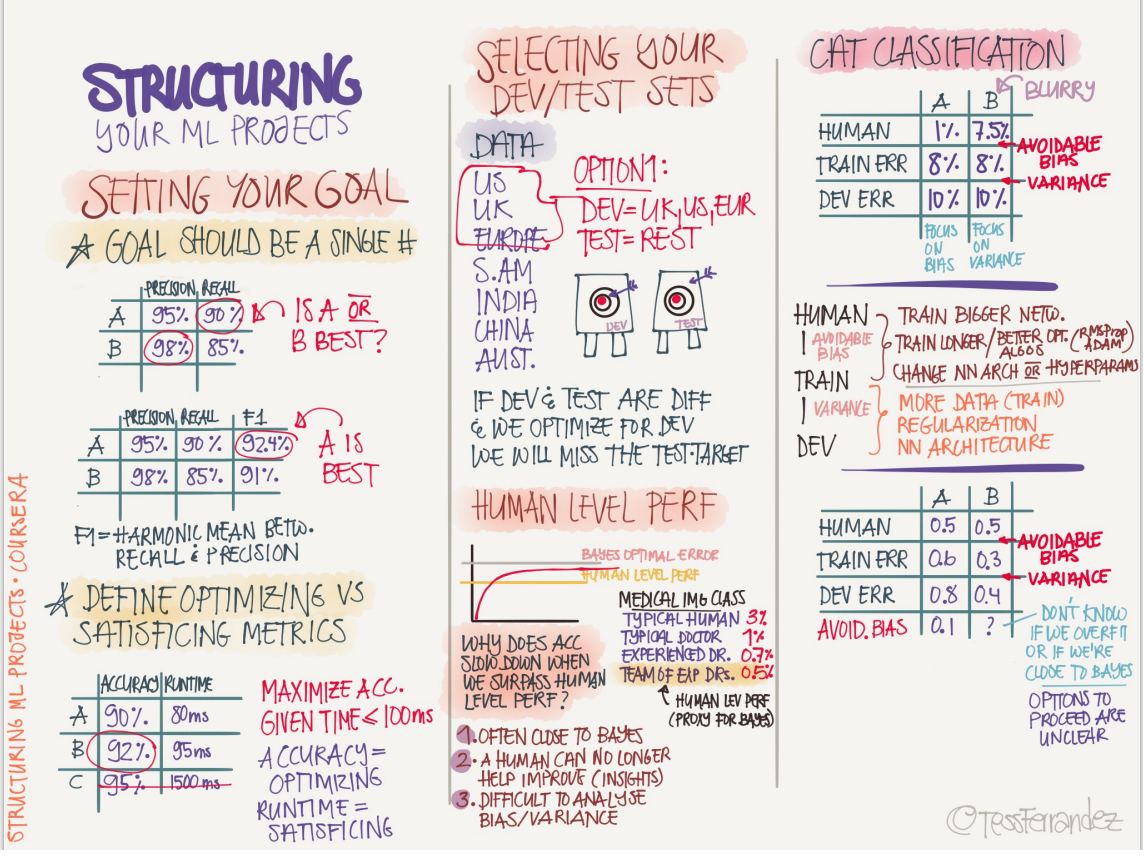 STRUCTURING
YOUR ML PROJECTS
SETTING YOUR GOAL
☆ GOAL SHOULD BE A SINGLE #
PRECISION RECALL
A 95% 90%
B 98% 85%
IS A OR
B BEST?
PRECISION RECALL F1
A 95% 90% 92.4%
B 98% 85% 91%
A IS
BEST
F1 = HARMONIC MEAN BETW.
RECALL & PRECISION
☆ DEFINE OPTIMIZING VS
SATISFICING METRICS
ACCURACY RUNTIME
A 90% 80ms
B 92% 95ms
C 95% 1500ms
MAXIMIZE ACC.
GIVEN TIME ≤ 100ms
ACCURACY =
OPTIMIZING
RUNTIME =
SATISFICING
STRUCTURING ML PROJECTS • COURSERA
SELECTING YOUR
DEV/TEST SETS
DATA
US
UK
EUROPE
S.AM
INDIA
CHINA
AUST.
OPTION1:
DEV = UK, US, EUR
TEST = REST
DEV
TEST
IF DEV & TEST ARE DIFF
& WE OPTIMIZE FOR DEV
WE WILL MISS THE TEST-TARGET
HUMAN LEVEL PERF
BAYES OPTIMAL ERROR
HUMAN LEVEL PERF
MEDICAL IMG CLASS
TYPICAL HUMAN 3%
TYPICAL DOCTOR 1%
EXPERIENCED DR. 0.7%
TEAM OF EXP DRS. 0.5%
HUMAN LEV PERF
(PROXY FOR BAYES)
WHY DOES ACC
SLOW DOWN WHEN
WE SURPASS HUMAN
LEVEL PERF?
1. OFTEN CLOSE TO BAYES
2. A HUMAN CAN NO LONGER
HELP IMPROVE (INSIGHTS)
3. DIFFICULT TO ANALYSE
BIAS/VARIANCE
CAT CLASSIFICATION
A B BLURRY
HUMAN 1% 7.5%
TRAIN ERR 8% 8%
DEV ERR 10% 10%
AVOIDABLE
BIAS
VARIANCE
FOCUS
ON
BIAS
FOCUS
ON
VARIANCE
HUMAN
AVOIDABLE
BIAS
TRAIN
VARIANCE
DEV
TRAIN BIGGER NETW.
TRAIN LONGER/BETTER OPT. ALGOS (RMSProp, ADAM)
CHANGE NN ARCH OR HYPERPARAMS
MORE DATA (TRAIN)
REGULARIZATION
NN ARCHITECTURE
A B
HUMAN 0.5 0.5
TRAIN ERR 0.6 0.3
DEV ERR 0.8 0.4
AVOID. BIAS 0.1 ?
AVOIDABLE
BIAS
VARIANCE
DON'T KNOW
IF WE OVERFIT
OR IF WE'RE
CLOSE TO BAYES
OPTIONS TO
PROCEED ARE
UNCLEAR
©TessFerrandez